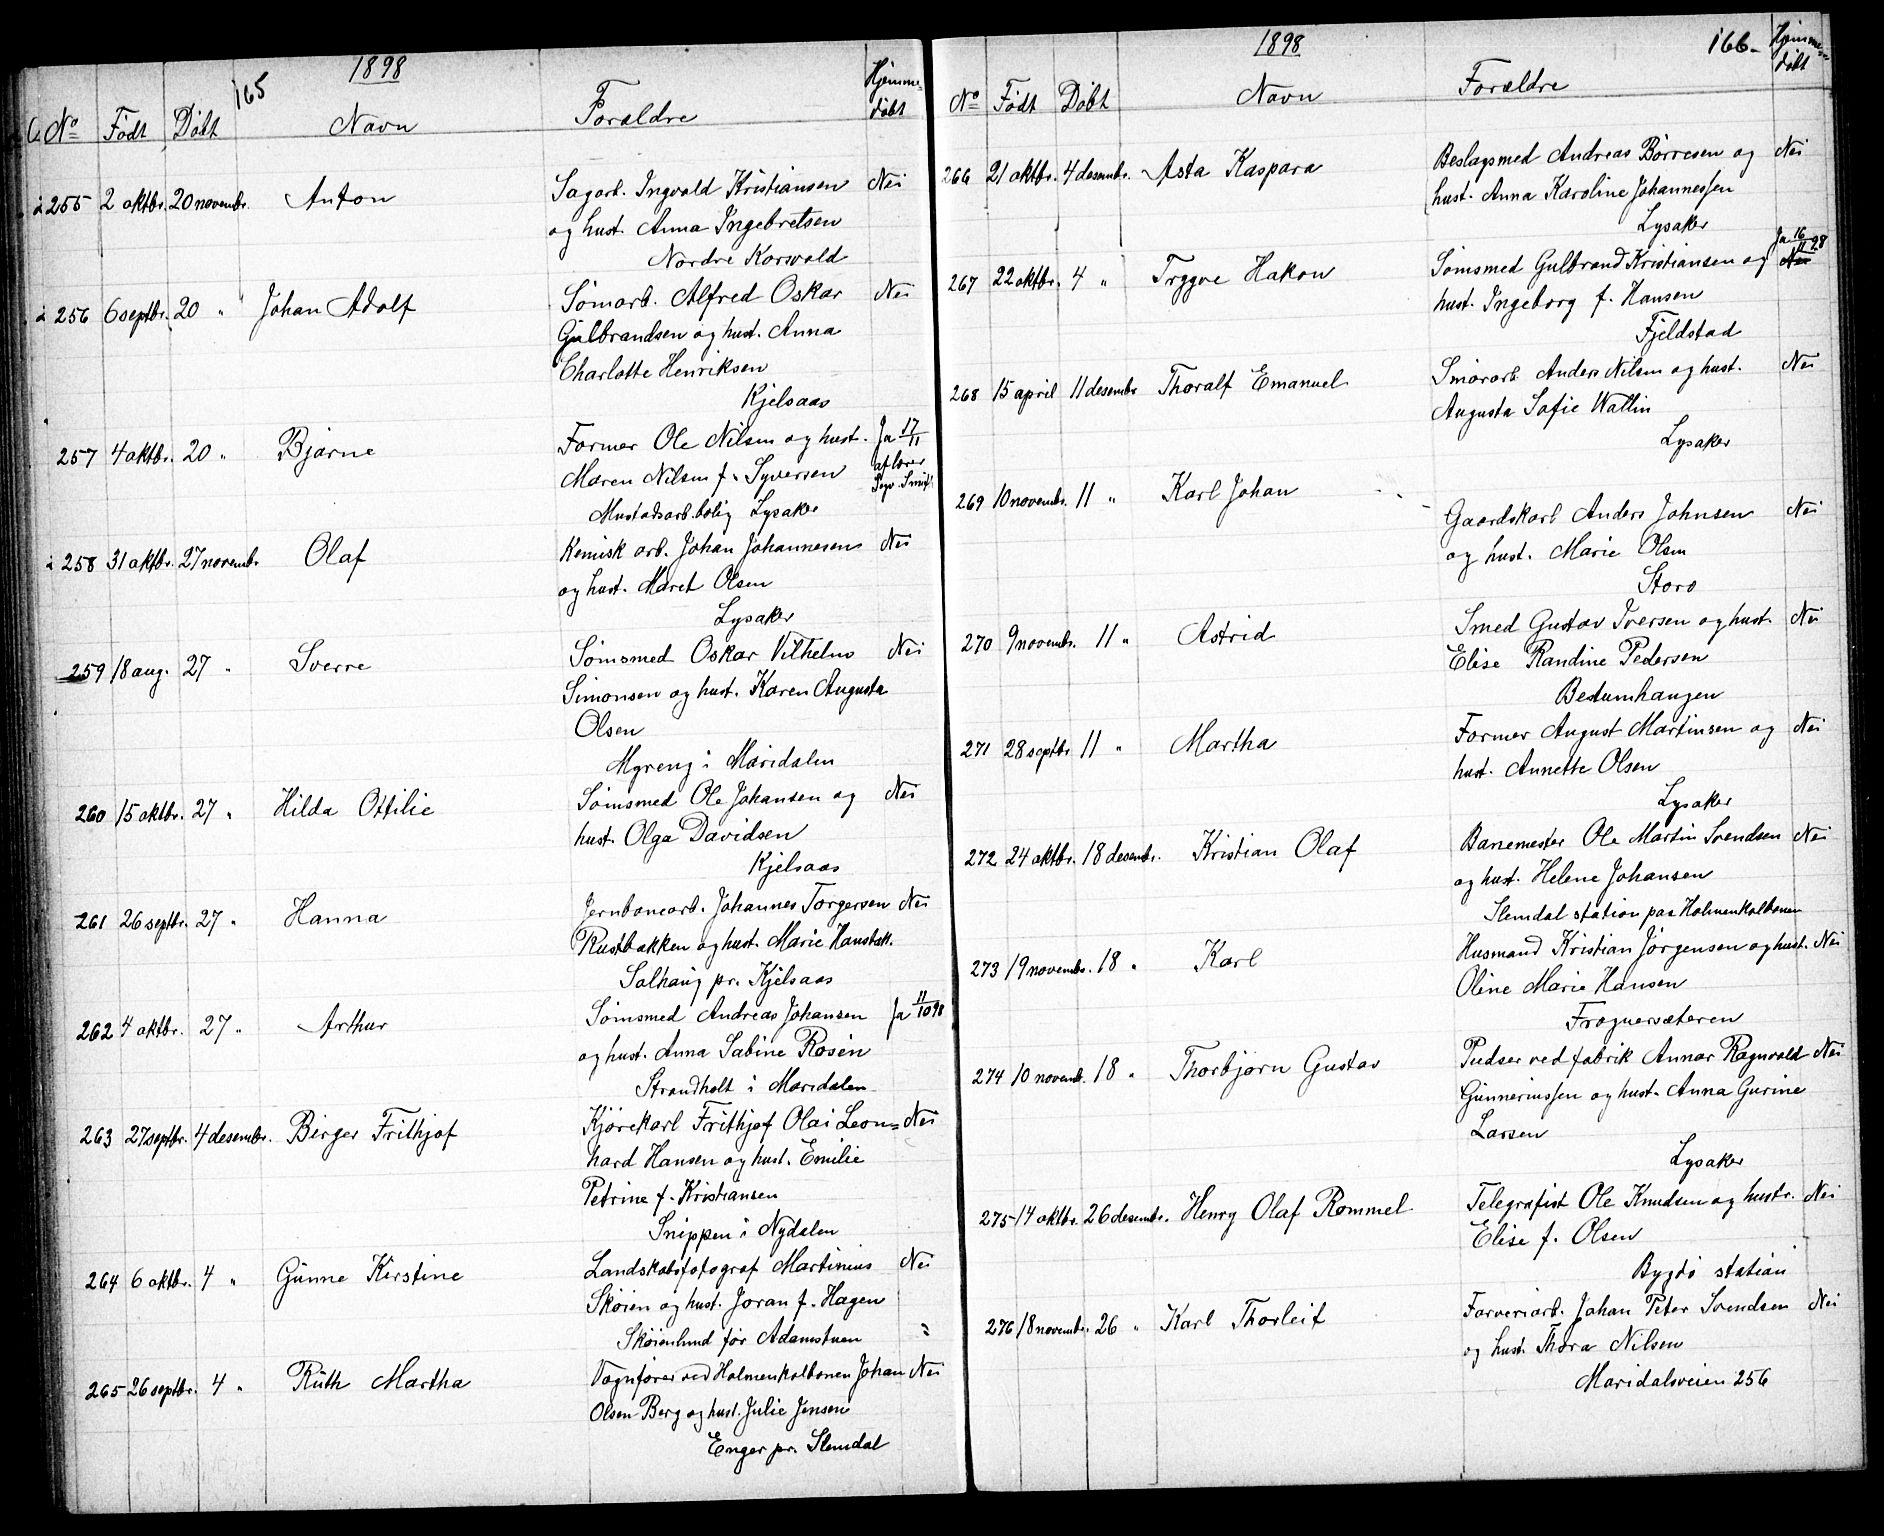 165 1898
No Født Døbt Navn Forældre Hjemmedøbt
255 2 oktbr. 20 novembr. Anton Sagarb. Ingvald Kristiansen Nei
og hust. Anna Ingebretsen
Nordre Korsvold
256 6 septbr. 20 " Johan Adolf Sømarb. Alfred Oskar Nei
Gulbrandsen og hust. Anna
Charlotte Henriksen
Kjelsaas
257 4 oktbr. 20 " Bjarne Former Ole Nilsen og hust. Ja 17/11
Maren Nilsen f. Syversen af lærer
Mustadsarb.bolig Lysaker
258 31 oktbr. 27 novembr. Olaf Kemisk arb. Johan Johannesen Nei
og hust. Maret Olsen
Lysaker
259 18 aug. 27 " Sverre Sømsmed Oskar Vilhelm Nei
Simonsen og hust. Karen Augusta
Olsen
Myreng i Maridalen
260 15 oktbr. 27 " Hilda Ottilie Sømsmed Ole Johansen og Nei
hust. Olga Davidsen
Kjelsaas
261 26 septbr. 27 " Hanna Jernbanearb. Johannes Torgersen Nei
Rustbakken og hust. Marie
Solhaug pr. Kjelsaas
262 4 oktbr. 27 " Arthur Sømsmed Andreas Johansen Ja 11/10 98
og hust. Anna Sabine Rosén
Strandholt i Maridalen
263 27 septbr. 4 desembr. Birger Frithjof Kjørekarl Frithjof Olai Leon= Nei
hard Hansen og hust. Emilie
Petrine f. Kristiansen
Snippen i Nydalen
264 6 oktbr. 4 " Gunne Kirstine Landskabsfotograf Martinius Nei
Skøien og hust. Joran f. Hagen
Skøienlund før Adamstuen
265 26 septbr. 4 " Ruth Martha Vognfører ved Holmenkolbanen Johan Nei
Olsen Berg og hust. Julie Jensen
Enger pr. Slemdal
1898 166
No Født Døbt Navn Forældre Hjemmedøbt
266 21 oktbr. 4 desembr. Asta Kaspara Beslagsmed Andreas Børresen og Nei
hust. Anna Karoline Johannessen
Lysaker
267 22 oktbr. 4 " Trygve Hakon Sømsmed Gulbrand Kristiansen og Ja 16/11 98 Nei
hust. Ingeborg f. Hansen
Fjeldstad
268 15 april 11 desembr. Thoralf Emanuel Smørarb. Anders Nilsen og hust. Nei
Augusta Sofie Wallin
Lysaker
269 10 novembr. 11 " Karl Johan Gaardskarl Anders Johnsen Nei
og hust. Marie Olsen
Storo
270 9 novembr. 11 " Astrid Smed Gustav Iversen og hust. Nei
Elise Randine Pedersen
Bestumhaugen
271 28 septbr. 11 " Martha Former August Martinsen og Nei
hust. Annette Olsen
Lysaker
272 24 oktbr. 18 desembr. Kristian Olaf Banemester Ole Martin Svendsen Nei
og hust. Helene Johansen
Slemdal station paa Holmenkolbanen
273 19 novembr. 18 " Karl Husmand Kristian Jørgensen og hust. Nei
Oline Marie Hansen
Frognersæteren
274 10 novemb. 18 " Thorbjørn Gustav Pudser ved fabrik Annar Ragnvald Nei
Gunneriussen og hust. Anna Gurine
Larsen
Lysaker
275 14 oktbr. 26 desembr. Henry Olaf Rommel Telegrafist Ole Knudsen og hustr. Nei
Elise f. Olsen
Bygdø station
276 18 novembr. 26 " Karl Thorleif Farveriarb. Johan Peter Svendsen Nei
og hust. Thora Nilsen
Maridalsveien 256